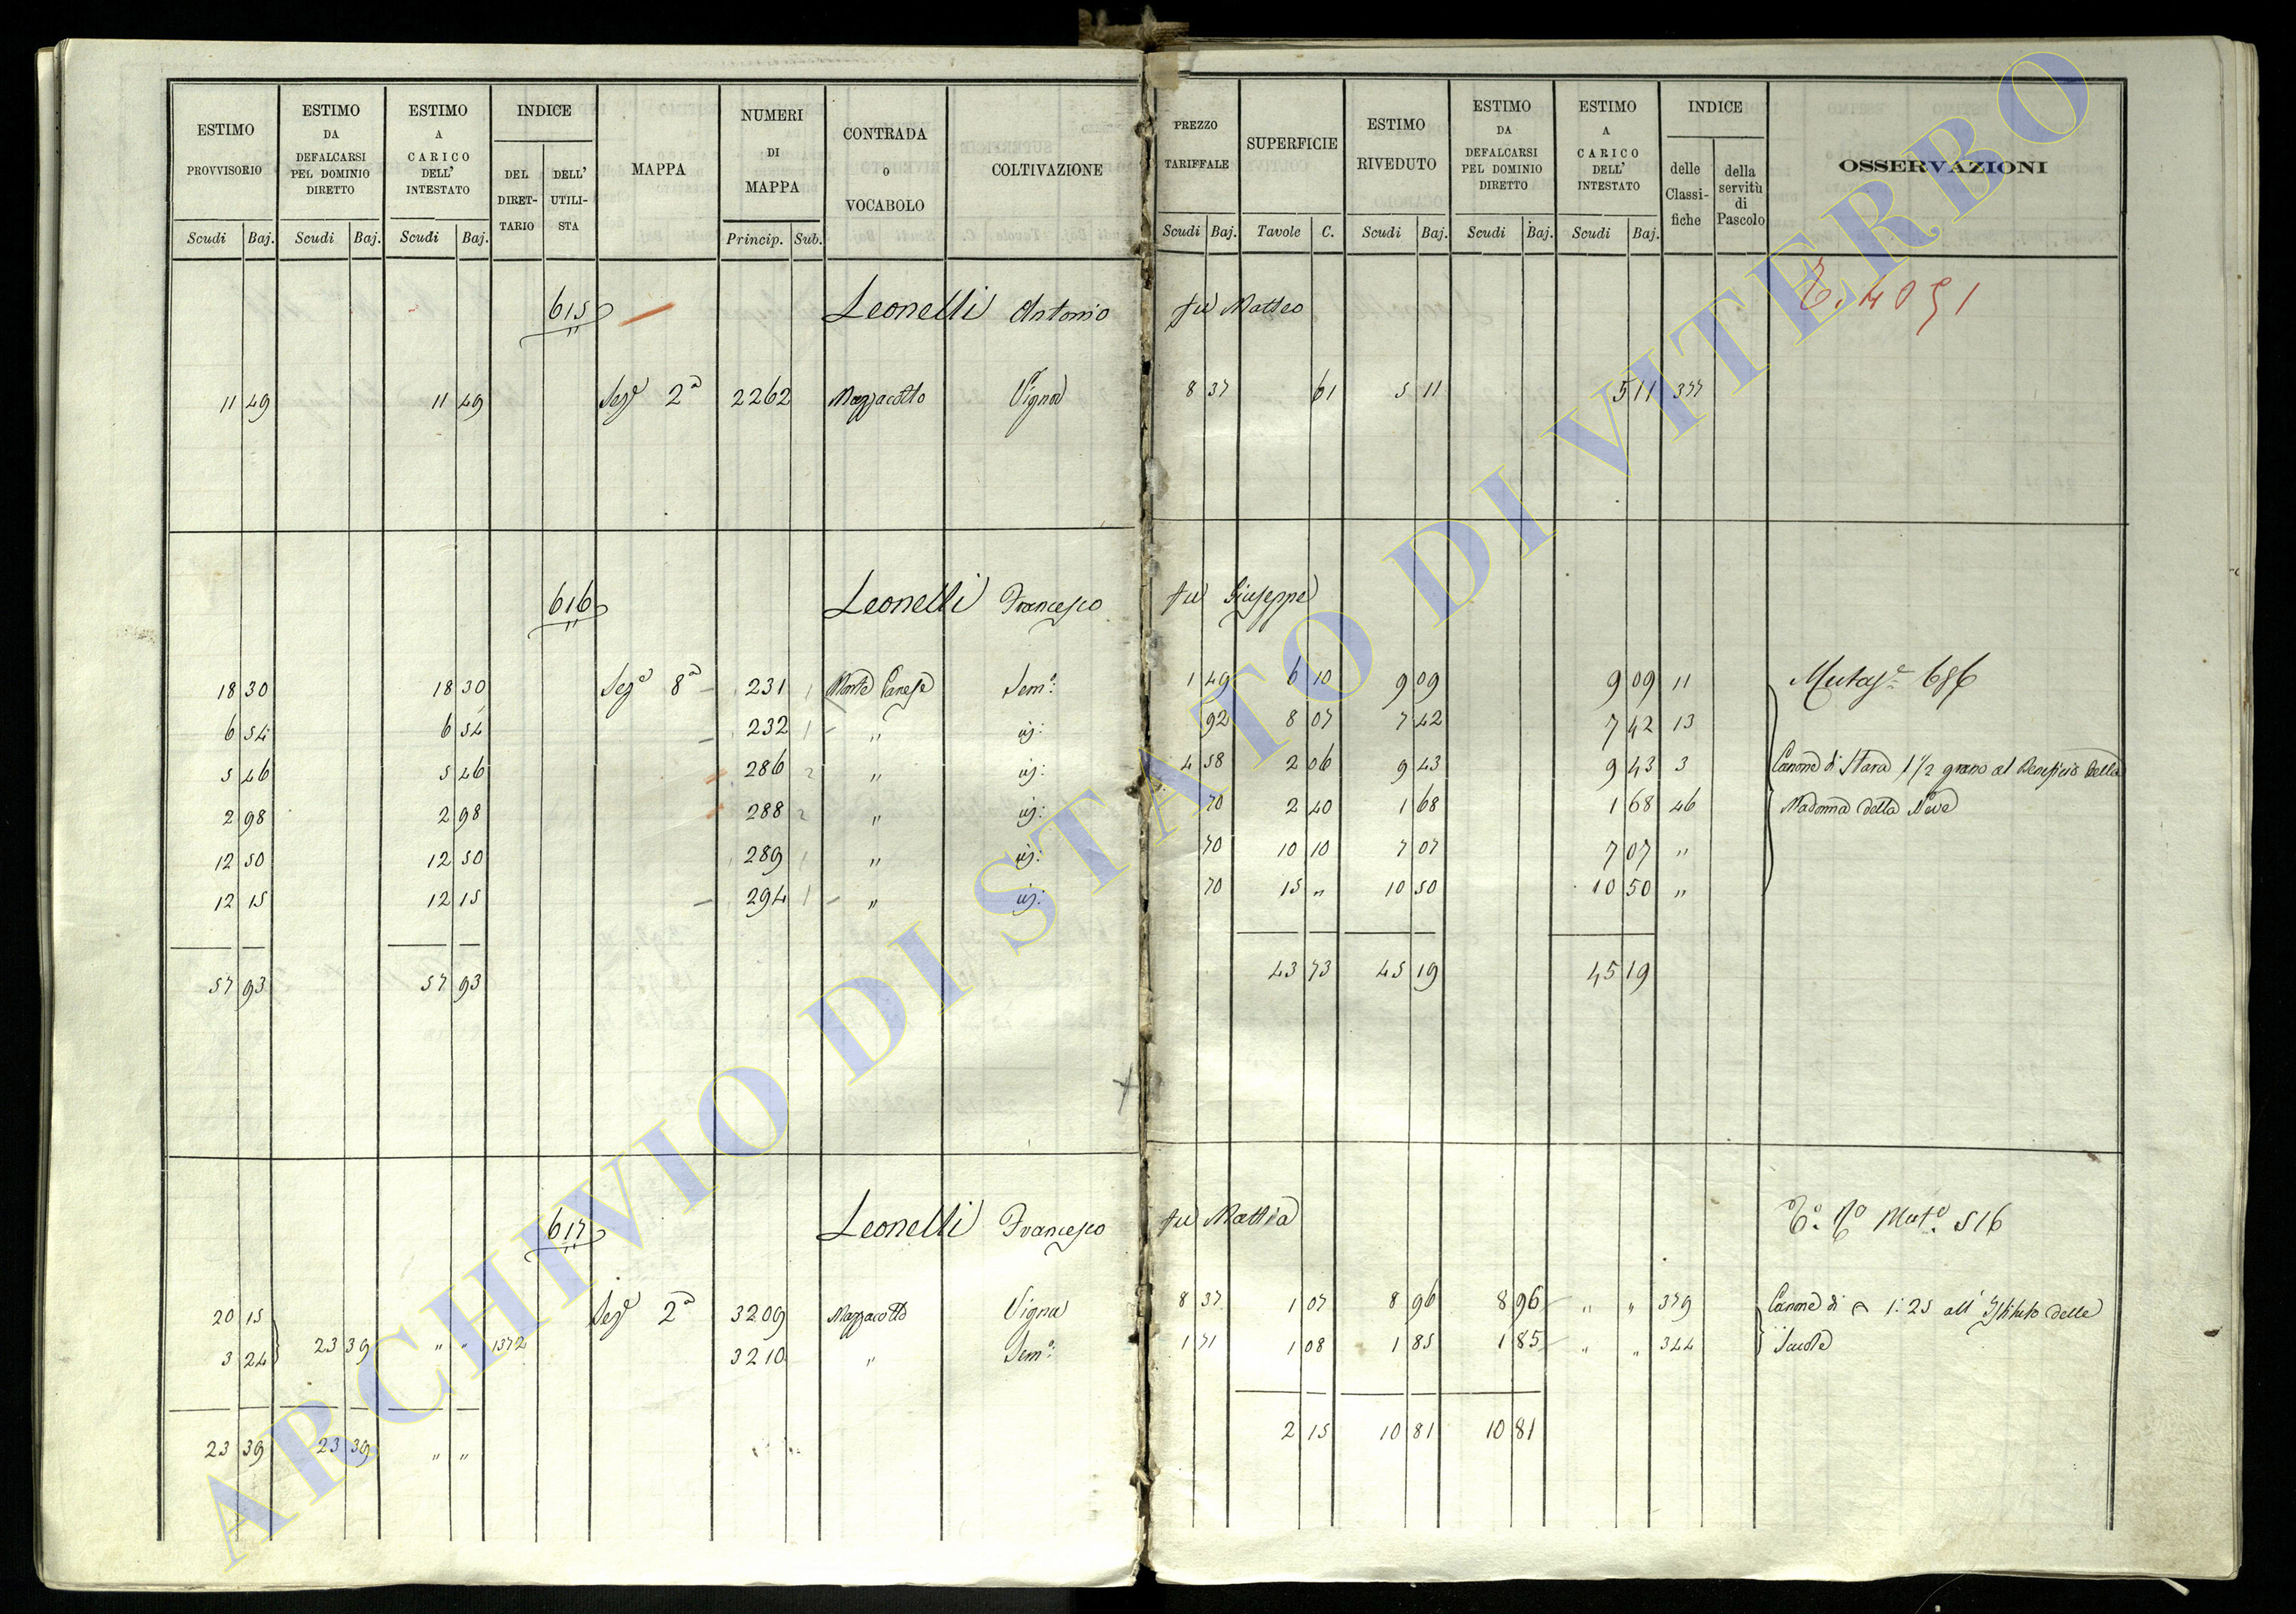 ESTIMO PROVVISORIO | ESTIMO DA DEFALCARSI PEL DOMINIO DIRETTO | ESTIMO A CARICO DELL' INTESTATO | INDICE | MAPPA | NUMERI DI MAPPA | CONTRADA o VOCABOLO | COLTIVAZIONE | PREZZO TARIFFALE | SUPERFICIE | ESTIMO RIVEDUTO | ESTIMO DA DEFALCARSI PEL DOMINIO DIRETTO | ESTIMO A CARICO DELL' INTESTATO | INDICE | OSSERVAZIONI
DEL DIRETTARIO | DELL' UTILISTA | delle Classifiche | della servitù di Pascolo
Scudi | Baj. | Scudi | Baj. | Scudi | Baj. | Princip. | Sub. | Scudi | Baj. | Tavole | C. | Scudi | Baj. | Scudi | Baj. | Scudi | Baj.
615 Leonelli Antonio fu Matteo 4091
11 49 | 11 49 | Sez.e 2a | 2262 | Mazzacotto | Vigna | 8 37 | 61 | 5 11 | 5 11 | 377
616 Leonelli Francesco fu Giuseppe
18 30 | 18 30 | Sez.e 8a | 231 1 | Monte Canese | Sem.o | 1 49 | 6 10 | 9 09 | 9 09 | 11 | 686
6 54 | 6 54 | 232 1 | " | id: | 92 | 8 07 | 7 42 | 7 42 | 13
5 46 | 5 46 | 286 2 | " | id: | 4 58 | 2 06 | 9 43 | 9 43 | 3 | Canone di Stara 1 1/2 grano al Beneficio della
2 98 | 2 98 | 288 2 | " | id: | 70 | 2 40 | 1 68 | 1 68 | 46 | Madonna della Neve
12 50 | 12 50 | 289 1 | " | id: | 70 | 10 10 | 7 07 | 7 07 | "
12 15 | 12 15 | 294 1 | " | id: | 70 | 15 " | 10 50 | 10 50 | "
57 93 | 57 93 | 43 73 | 45 19 | 45 19
617 Leonelli Francesco fu Mattia 516
20 15 | Sez.e 2a | 3209 | Mazzacotto | Vigna | 8 37 | 1 07 | 8 96 | 8 96 | " " | 379 | Canone di 1:25 all' Istituto delle
3 24 | 23 39 | " " | 1372 | 3210 | " | Sem.o | 1 71 | 1 08 | 1 85 | 1 85 | " " | 344 | Scuole
23 39 | 23 39 | " " | 2 15 | 10 81 | 10 81
ARCHIVIO DI STATO DI VITERBO